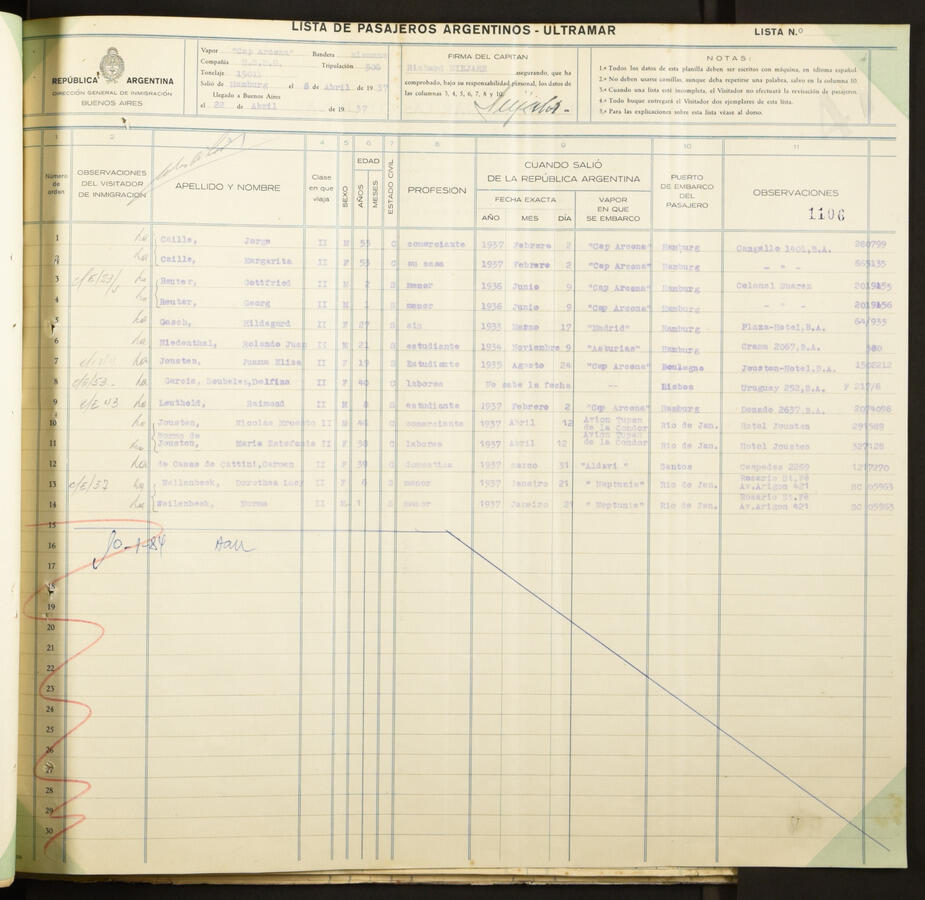 LISTA DE PASAJEROS ARGENTINOS - ULTRAMAR
LISTA N.º
REPÚBLICA ARGENTINA
DIRECCIÓN GENERAL DE INMIGRACIÓN
BUENOS AIRES
Vapor "Cap Arcona" Bandera
Compañia Tripulación
Tonelaje 15011
Salió de Hamburg el 8 de Abril de 1937
Llegado a Buenos Aires
el 22 de Abril de 19 37
FIRMA DEL CAPITAN
Richard NIEJAHR asegurando, que ha
comprobado, bajo su responsabilidad personal, los datos de
las columnas 3, 4, 5, 6, 7, 8 y 10.
NOTAS:
1.ª Todos los datos de esta planilla deben ser escritos con máquina, en idioma español.
2.ª No deben usarse comillas, aunque deba repetirse una palabra, salvo en la columna 10.
3.ª Cuando una lista esté incompleta, el Visitador no efectuará la revisación de pasajeros.
4.ª Todo buque entregará el Visitador dos ejemplares de esta lista.
5.ª Para las explicaciones sobre esta lista véase al dorso.
1 2 4 5 6 7 8 9 10 11
Número de orden
OBSERVACIONES DEL VISITADOR DE INMIGRACIÓN
APELLIDO Y NOMBRE
Clase en que viaja
SEXO
EDAD
AÑOS
MESES
ESTADO CIVIL
PROFESION
CUANDO SALIÓ
DE LA REPÚBLICA ARGENTINA
FECHA EXACTA
AÑO MES DÍA
VAPOR EN QUE SE EMBARCO
PUERTO DE EMBARCO DEL PASAJERO
OBSERVACIONES
1106
1 Caille, Jorge II M 55 C comerciante 1937 Febrero 2 "Cap Arcona" Hamburg Cangallo 1401,B.A. 280799
2 Caille, Margarita II F 53 C su casa 1937 Febrero 2 "Cap Arcona" Hamburg - " - 665135
3 Reuter, Gottfried II M 2 S menor 1936 Junio 9 "Cap Arcona" Hamburg Colonel Suarez 2019155
4 Reuter, Georg II M 1 S menor 1936 Junio 9 "Cap Arcona" Hamburg - " - 2019156
5 Gasch, Hildegard II F 27 S sin 1933 Marzo 17 "Madrid" Hamburg Plaza-Hotel,B.A.
6 Niedenthal, Rolando Juan II M 21 S estudiante 1934 Noviembre 9 "Asturias" Hamburg 2067,B.A.
7 Jousten, Juana Elisa II F 19 S Estudiante 1935 Agosto 24 "Cap Arcona" Boulogne Jousten-Hotel,B.A.
8 Garcia, Delfina II F 40 C labores No sabe la fecha -- Lisboa Uruguay 252,B.A.
9 Leuthold, Raimond II M 8 S estudiante 1937 Febrero 2 "Cap Arcona" Hamburg 2637,B.A. 2074098
10 Jousten, Nicolas Ernesto II M C comerciante 1937 Abril 12 Avion Tupan de la Condor Rio de Jan. Hotel Jousten 291589
11 Jousten, Maria Estefania II F 38 C labores 1937 Abril 12 Avion Tupan de la Condor Rio de Jan. Hotel Jousten 327128
12 de Casas de Cattini,Carmen II F 39 C domestica 1937 marzo 31 Santos Cespedes 2269 1217270
13 Weilenbeck, Dorothea Lucy II F 6 S menor 1937 Janeiro 21 "Neptunia" Rio de Jan. Rosario St.Fé Av.Arigon 421
14 Weilenbeck, Norma II M 1 S menor 1937 Janeiro 21 "Neptunia" Rio de Jan. Rosario St.Fé Av.Arigon 421
15
16
17
18
19
20
21
22
23
24
25
26
27
28
29
30